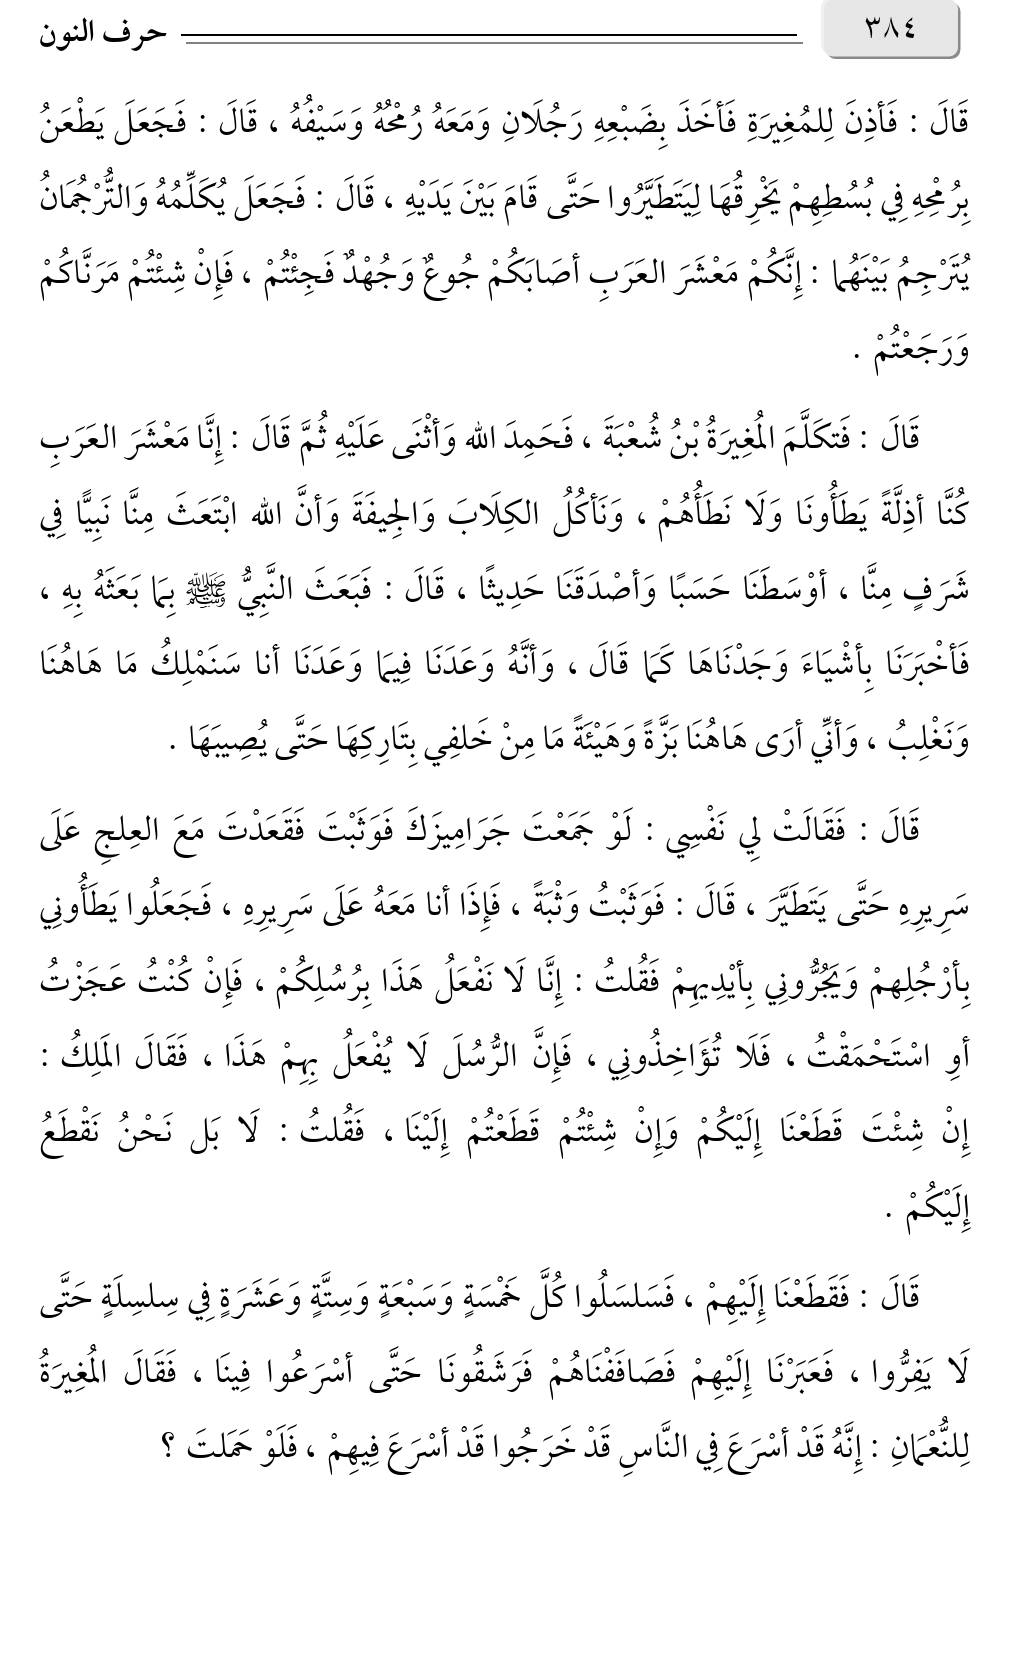 ٣٨٤ حرف النون
قَالَ : فَأذِنَ لِلمُغِيرَةِ فَأخَذَ بِضَبْعِهِ رَجُلَانِ وَمَعَهُ رُمْحُهُ وَسَيْفُهُ ، قَالَ : فَجَعَلَ يَطْعَنُ
بِرُمْحِهِ فِي بُسُطِهِمْ يَخْرِقُهَا لِيَتَطَيَّرُوا حَتَّى قَامَ بَيْنَ يَدَيْهِ ، قَالَ : فَجَعَلَ يُكَلِّمُهُ وَالتُّرْجُمَانُ
يُتَرْجِمُ بَيْنَهُمَا : إِنَّكُمْ مَعْشَرَ العَرَبِ أصَابَكُمْ جُوعٌ وَجُهْدٌ فَجِئْتُمْ ، فَإِنْ شِئْتُمْ مَرَنَّاكُمْ
وَرَجَعْتُمْ .
قَالَ : فَتكَلَّمَ المُغِيرَةُ بْنُ شُعْبَةَ ، فَحَمِدَ الله وَأثْنَى عَلَيْهِ ثُمَّ قَالَ : إِنَّا مَعْشَرَ العَرَبِ
كُنَّا أذِلَّةً يَطَأُونَا وَلَا نَطَأُهُمْ ، وَنَأكُلُ الكِلَابَ وَالجِيفَةَ وَأنَّ الله ابْتَعَثَ مِنَّا نَبِيًّا فِي
شَرَفٍ مِنَّا ، أوْسَطَنَا حَسَبًا وَأصْدَقَنَا حَدِيثًا ، قَالَ : فَبَعَثَ النَّبِيُّ ﷺ بِمَا بَعَثَهُ بِهِ ،
فَأخْبَرَنَا بِأشْيَاءَ وَجَدْنَاهَا كَمَا قَالَ ، وَأنَّهُ وَعَدَنَا فِيمَا وَعَدَنَا أنا سَنَمْلِكُ مَا هَاهُنَا
وَنَغْلِبُ ، وَأنِّي أرَى هَاهُنَا بَزَّةً وَهَيْئَةً مَا مِنْ خَلفِي بِتَارِكِهَا حَتَّى يُصِيبَهَا .
قَالَ : فَقَالَتْ لِي نَفْسِي : لَوْ جَمَعْتَ جَرَامِيزَكَ فَوَثَبْتَ فَقَعَدْتَ مَعَ العِلجِ عَلَى
سَرِيرِهِ حَتَّى يَتَطَيَّرَ ، قَالَ : فَوَثَبْتُ وَثْبَةً ، فَإِذَا أنا مَعَهُ عَلَى سَرِيرِهِ ، فَجَعَلُوا يَطَأُونِي
بِأرْجُلِهمْ وَيَجُرُّونِي بِأيْدِيهِمْ فَقُلتُ : إِنَّا لَا نَفْعَلُ هَذَا بِرُسُلِكُمْ ، فَإِنْ كُنْتُ عَجَزْتُ
أوِ اسْتَحْمَقْتُ ، فَلَا تُؤَاخِذُونِي ، فَإِنَّ الرُّسُلَ لَا يُفْعَلُ بِهِمْ هَذَا ، فَقَالَ المَلِكُ :
إِنْ شِئْتَ قَطَعْنَا إِلَيْكُمْ وَإِنْ شِئْتُمْ قَطَعْتُمْ إِلَيْنَا ، فَقُلتُ : لَا بَل نَحْنُ نَقْطَعُ
إِلَيْكُمْ .
قَالَ : فَقَطَعْنَا إِلَيْهِمْ ، فَسَلسَلُوا كُلَّ خَمْسَةٍ وَسَبْعَةٍ وَسِتَّةٍ وَعَشَرَةٍ فِي سِلسِلَةٍ حَتَّى
لَا يَفِرُّوا ، فَعَبَرْنَا إِلَيْهِمْ فَصَافَفْنَاهُمْ فَرَشَقُونَا حَتَّى أسْرَعُوا فِينَا ، فَقَالَ المُغِيرَةُ
لِلنُّعْمَانِ : إِنَّهُ قَدْ أسْرَعَ فِي النَّاسِ قَدْ خَرَجُوا قَدْ أسْرَعَ فِيهِمْ ، فَلَوْ حَمَلتَ ؟